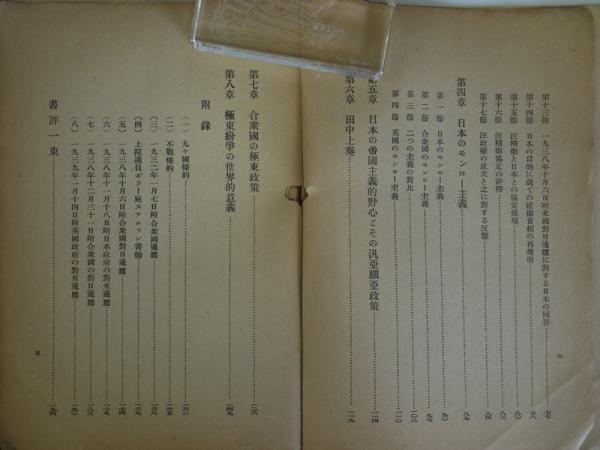 第十三節 一九三八年十月六日附米國對日通牒に對する日本の回答
第十四節 日本の目的に就ての近衞首相の再聲明
第十五節 汪精衞と日本との協定條項
第十六節 汪精衞協定の評釋
第十七節 汪政權の成立と之に對する反響
第四章 日本のモンロー主義
第一節 日本のモンロー主義
第二節 合衆國のモンロー主義
第三節 二つの主義の對比
第四節 英國のモンロー主義
第五章 日本の帝國主義的野心とその汎亞細亞政策
第六章 田中上奏
四
第七章 合衆國の極東政策
第八章 極東紛爭の世界的意義
附錄
(一) 九ケ國條約
(二) 不戰條約
(三) 一九三二年一月七日附合衆國通牒
(四) 上院議員ボラー宛スチムソン書翰
(五) 一九三八年十月六日附合衆國對日通牒
(六) 一九三八年十一月十八日附日本政府の對米通牒
(七) 一九三八年十二月三十一日附合衆國の對日通牒
(八) 一九三九年一月十四日附英國政府の對日通牒
書評一束
五